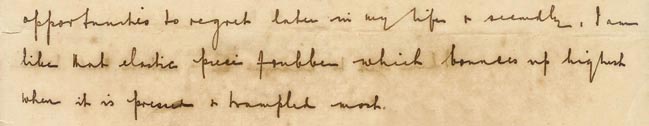 opportunities to regret later in my life & secondly, I am
like that elastic piece of rubber which bounces up highest
when it is pressed & trampled most.